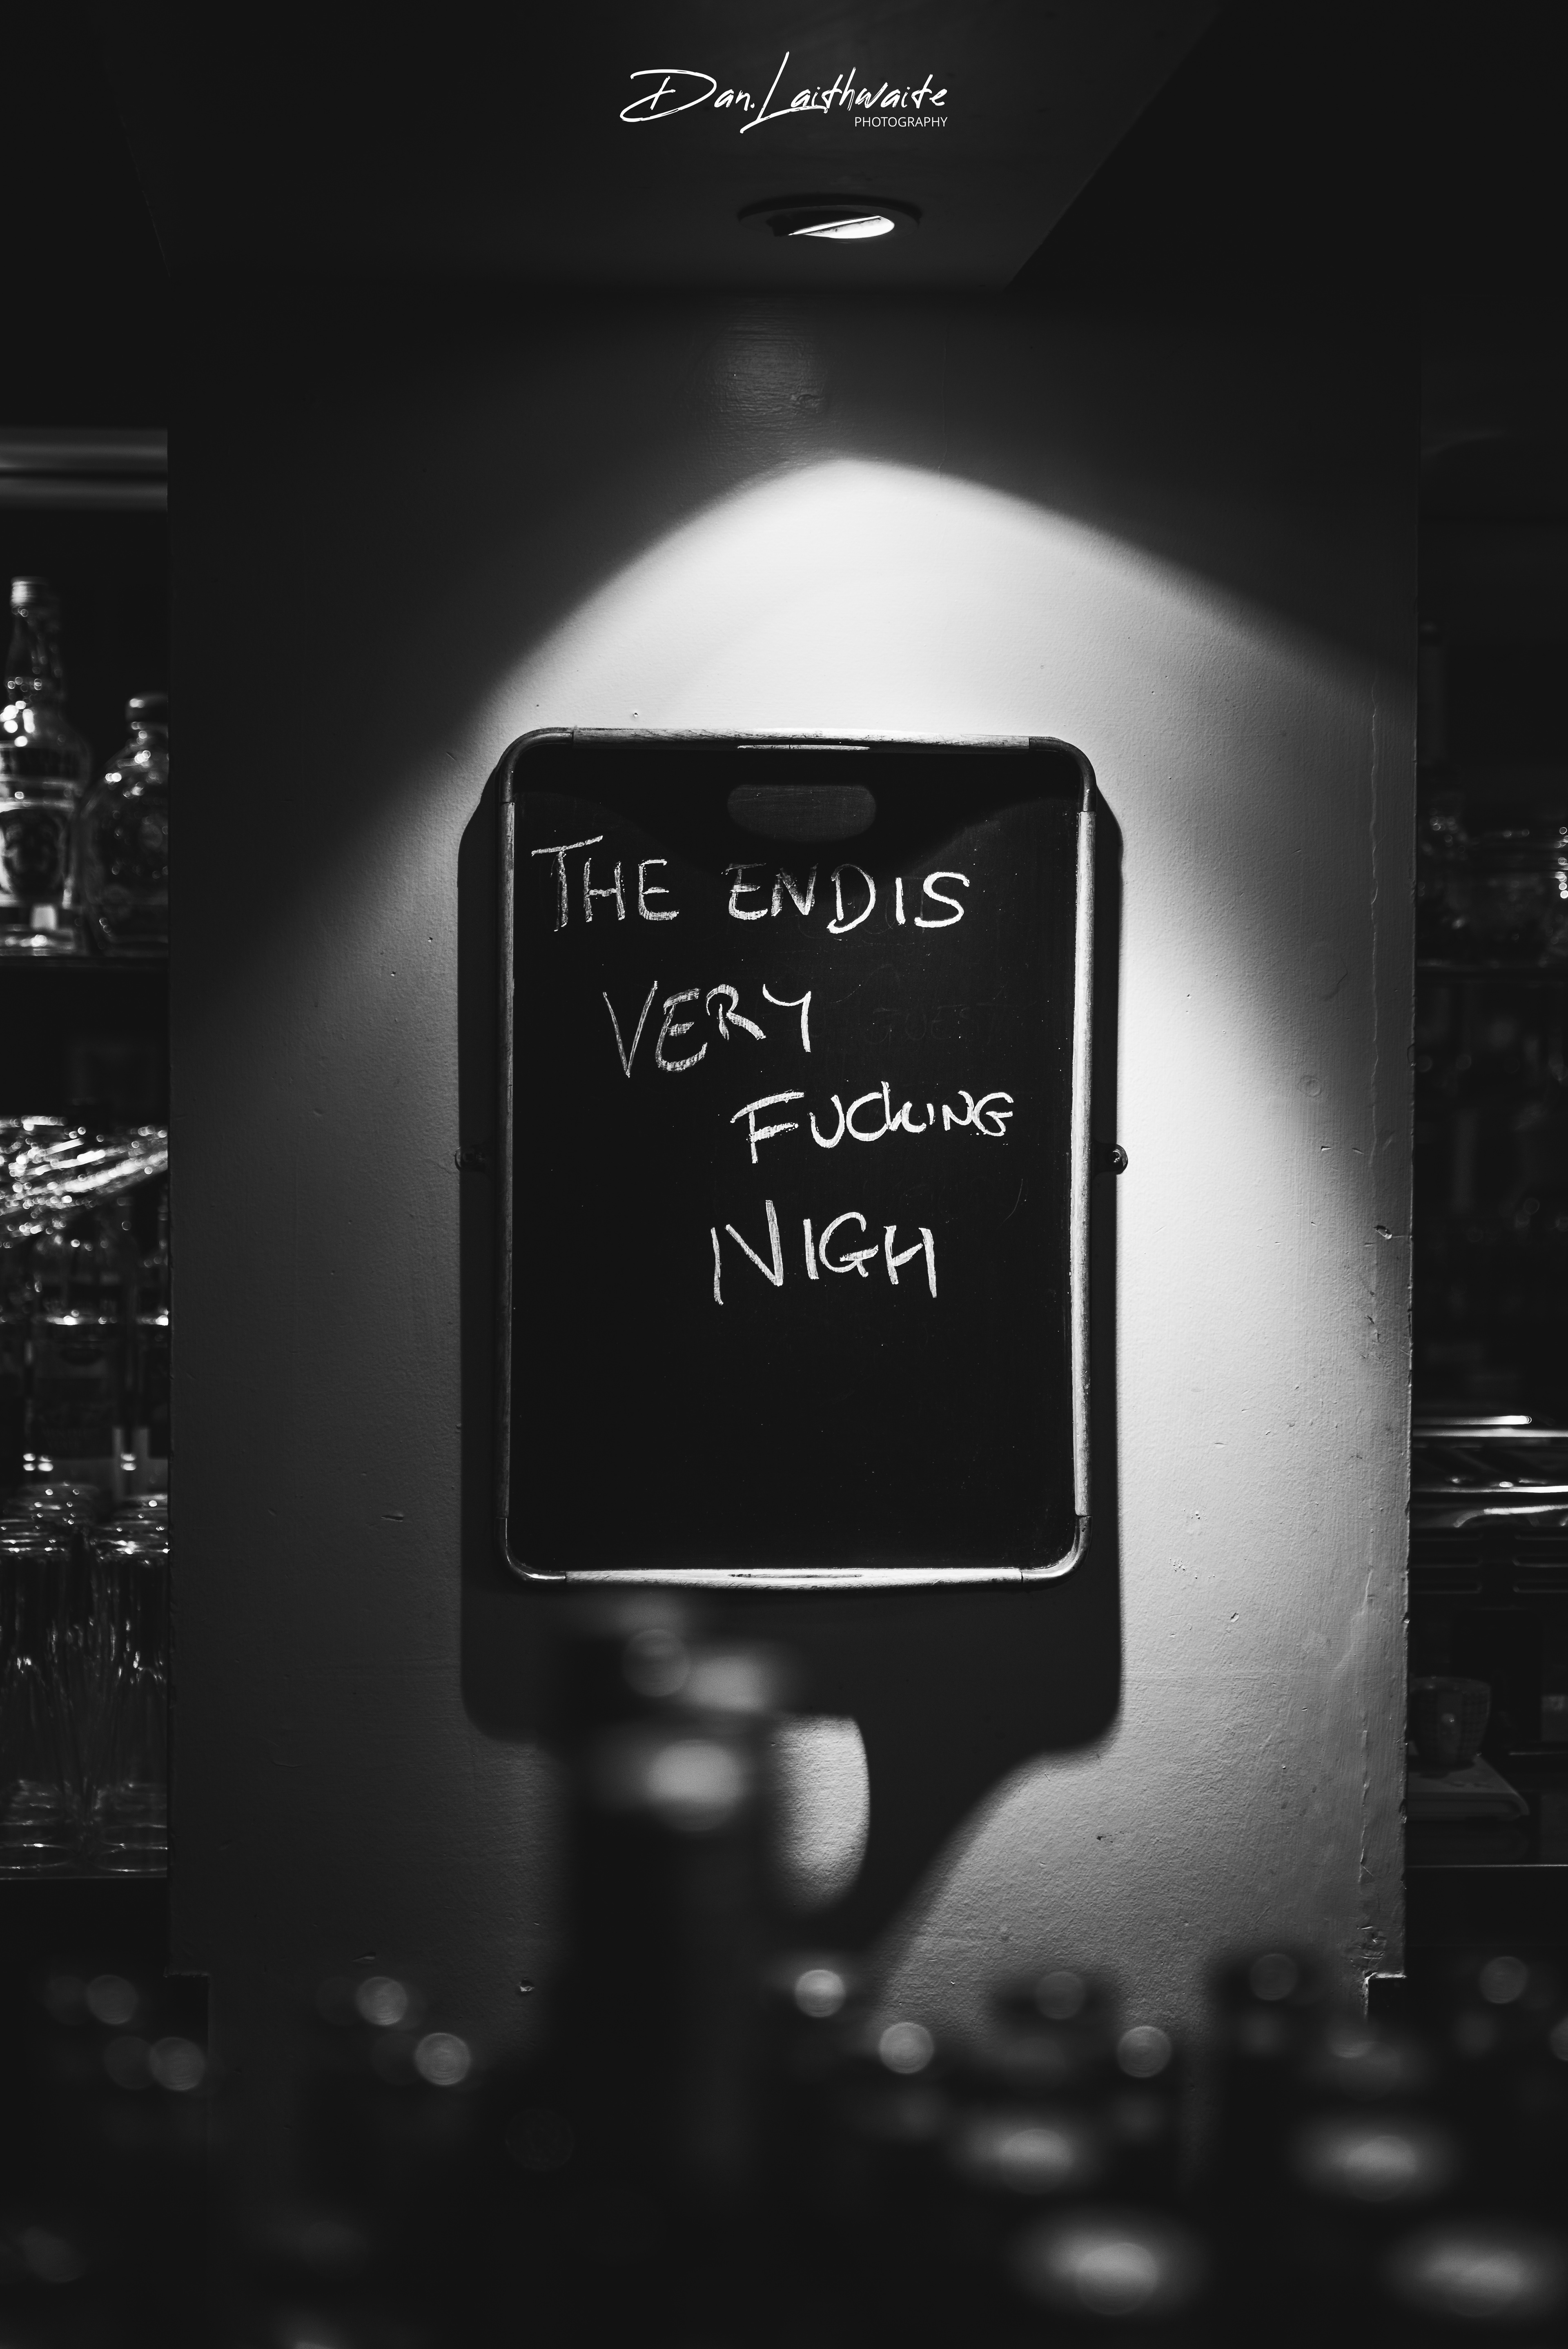 Dan.Laithwaite
PHOTOGRAPHY
THE END IS
VERY
FUCKING
NIGH